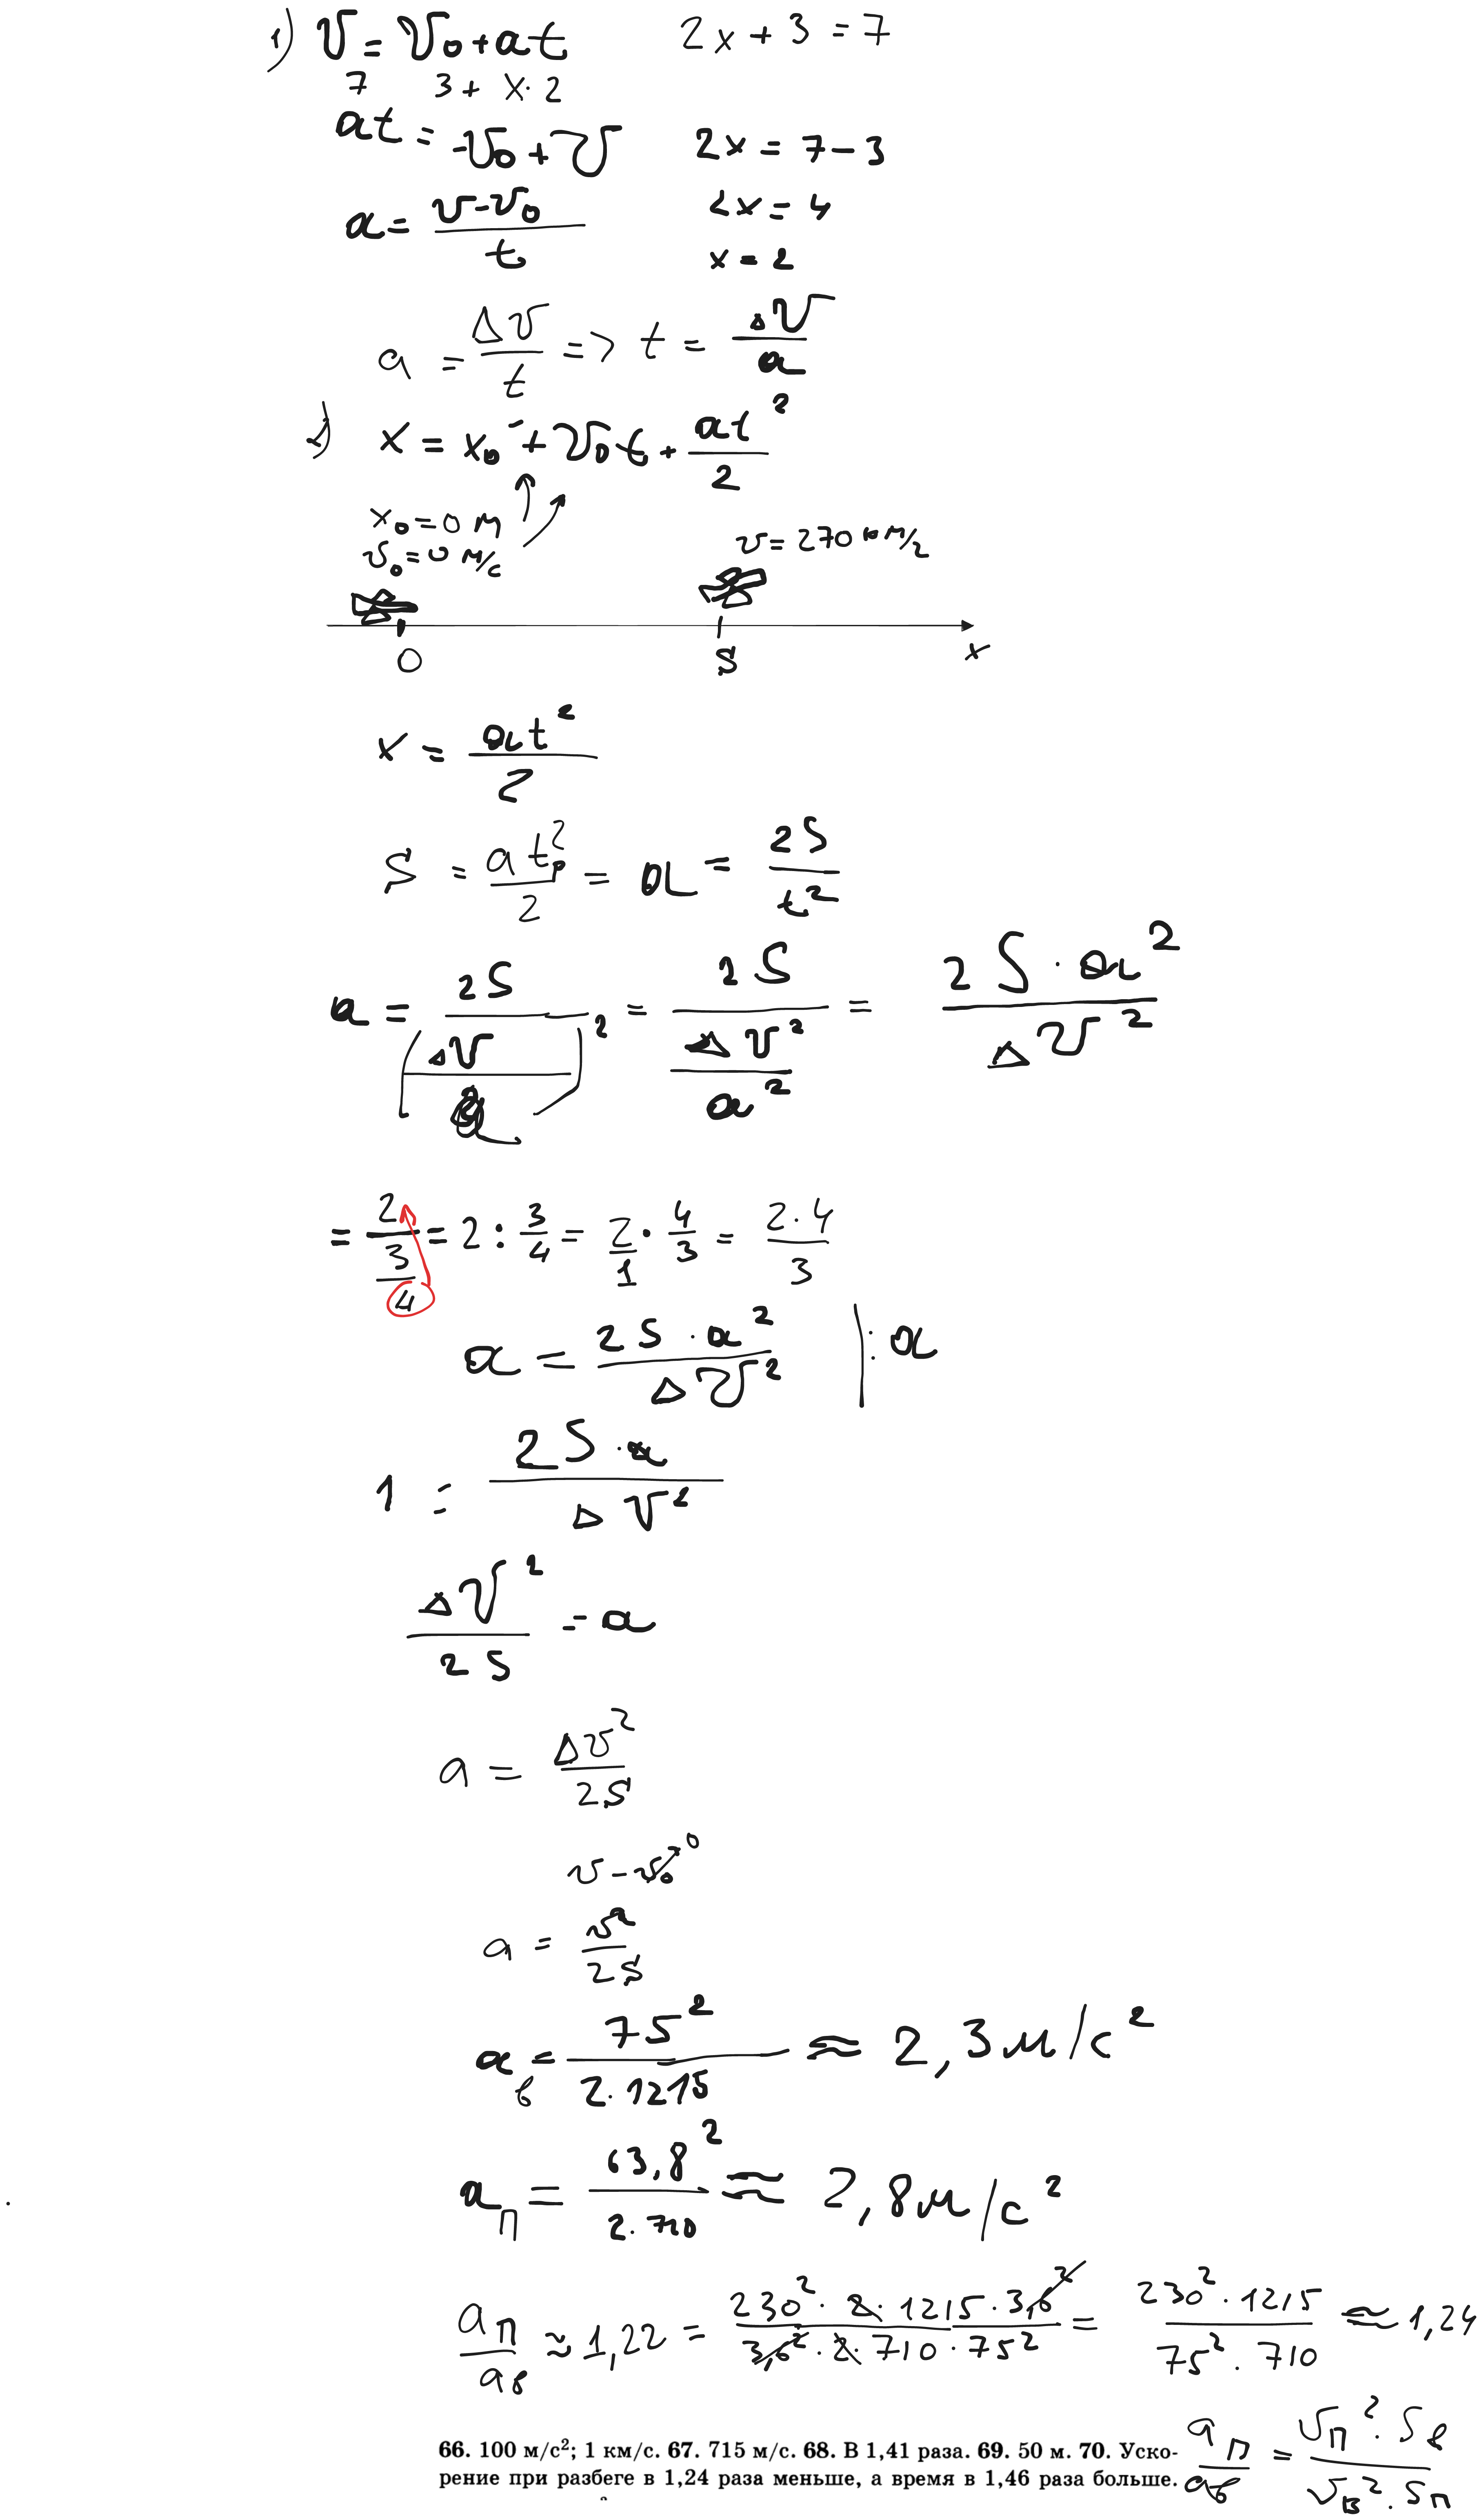 1) v = v₀ + at 2x + 3 = 7
7 3 + x · 2
at = -v₀ + v 2x = 7 - 3
a = (v - v₀)/t 2x = 4
x = 2
a = Δv/t => t = Δv/a
2) x = x₀ + v₀t + at²/2
x₀ = 0 м
v₀ = 0 м/с v = 270 км/г
0 S x
x = at²/2
S = at²/2 = a = 2S/t²
a = 2S/(Δv/a)² = 2S/(Δv²/a²) = 2S · a²/Δv²
= 2/(3/4) = 2 : 3/4 = 2/1 · 4/3 = 2 · 4/3
a = 2S · a²/Δv² | : a
1 = 2S · a/Δv²
Δv²/2S = a
a = Δv²/2S
v - v₀ 0
a = v²/2S
aв = 75²/2 · 1215 ≈ 2,3 м/с²
aп = 63,8²/2 · 710 ≈ 2,8 м/с²
aп/aв ≈ 1,22 = 230² · 2 · 1215 · 3,6²/3,6² · 2 · 710 · 75² = 230² · 1215/75² · 710 ≈ 1,24
66. 100 м/с²; 1 км/с. 67. 715 м/с. 68. В 1,41 раза. 69. 50 м. 70. Уско-
рение при разбеге в 1,24 раза меньше, а время в 1,46 раза больше.
aп/aв = vп² · Sв/vв² · Sп